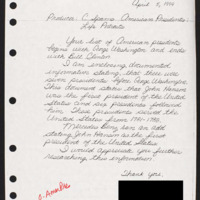 April 9, 1996
Producer, C-Spans American Presidents:
Life Portraits
Your list of American presidents
begins with George Washington and ends
with Bill Clinton.
I am enclosing documented
information stating that there were
seven presidents before George Washington.
This document states that John Hanson
was the first president of the United
States and six presidents followed
him. These presidents served the
United States from 1781-1789.
ask to add
John Hanson as the first
president of the United States.
I would appreciate you further
researching this information.
Thank you,